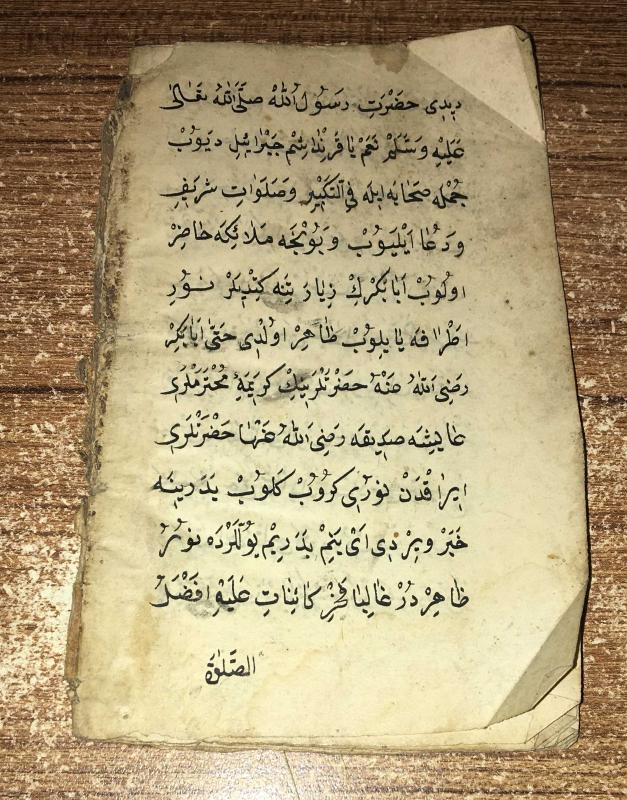 ديدى حضرت رسول الله صلى الله تعالى
عليه وسلم نعم يا قرنداشم جبرائيل ديوب
جمله صحابه ايله فى التكبير وصلوات شريف
ودعا ايليوب وبونجه ملائكه حاضر
اولوب ابا بكرك زيارتينه كتديلر نور
اطرافه يايلوب ظاهر اولدى حتى ابا بكر
رضى الله عنه حضرتلرينك كريمۀ محترملرى
عايشه صديقه رضى الله عنها حضرتلرى
ايراقدن نورى كروب كلوب پدرينه
خبر ويردى اى بنم پدريم يوللرده نور
ظاهردر غالبا فخر كائنات عليه افضل
الصلوة